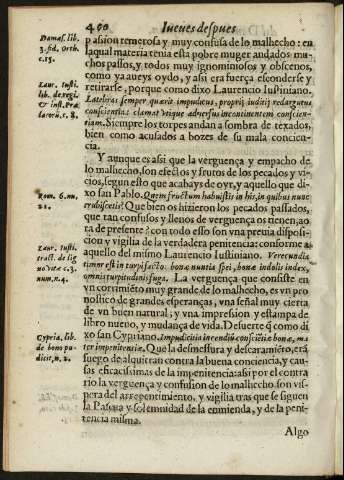 460 Iueues despues
Damas. lib.
3. fid. Orth.
c. 15.
Laur. Iusti.
lib. de regi.
& inst. Præ
latorũ, c. 8.
Rom. 6. nu.
21.
Laur. Iusti.
tract. de lig
no vitæ c. 3.
num. 4.
Cypria. lib.
de bono pu
dicit, n. 2.
passion temerosa y muy confusa de lo malhecho: en
la qual materia tenia esta pobre muger andados mu-
chos passos, y todos muy ignominiosos y obscenos,
como ya aueys oydo, y assi era fuerça esconderse y
retirarse, porque como dixo Laurencio Iustiniano.
Latebras semper quærit impudicus, proprij iuditij redargutus
conscientia: clamat vtique aduersus incontinentem conscien-
tiam. Siempre los torpes andan a sombra de texados,
bien como acusados a bozes de su mala concien-
cia.
Y aunque es assi que la verguença y empacho de
lo malhecho, son efectos y frutos de los pecados y vi-
cios, segun esto que acabays de oyr, y aquello que di-
xo san Pablo. Quem fructum habuistis in his, in quibus nunc
erubescitis? Que bien os hizieron los pecados passados,
que tan confusos y llenos de verguença os tienen, ao
ra de presente? con todo esso son vna preuia disposi-
cion y vigilia de la verdadera penitencia: conforme a
aquello del mismo Laurencio Iustiniano. Verecundia
timor est in turpi facto: bonæ nuntia spei, bonæ indolis index,
omnis turpitudinis fuga. La verguença que consiste en
vn corrimiẽto muy grande de lo malhecho, es vn pro
nostico de grandes esperanças, vna señal muy cierta
de vn buen natural; y vna impression y estampa de
libro nueuo, y mudança de vida. De suerte q̃ como di
xo san Cypriano. Impudicitia incendiũ conscientiæ bonæ, ma
ter impenitentiæ. Que la desmesura y descaramiẽto, era
fuego de alquitran contra la buena conciencia, y cau-
sas eficacissimas de la impenitencia: assi por el contra
rio la verguença y confusion de lo malhecho son vis-
pera del arrepentimiento, y vigilia tras que se siguen
la Pascua y solemnidad de la enmienda, y de la peni-
tencia misma.
Algo